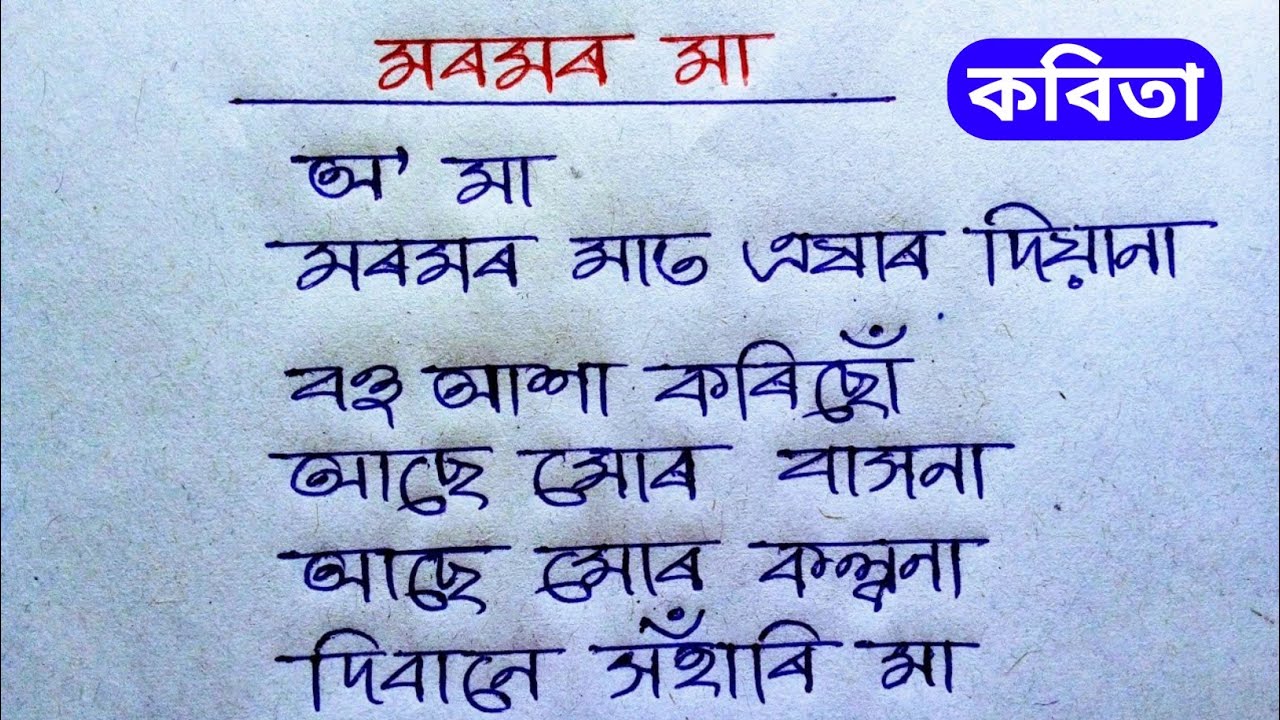 মৰমৰ মা
কবিতা
অ' মা
মৰমৰ মাত এষাৰ দিয়ানা
বহু আশা কৰিছোঁ
আছে মোৰ বাসনা
আছে মোৰ কল্পনা
দিবানে সঁহাৰি মা